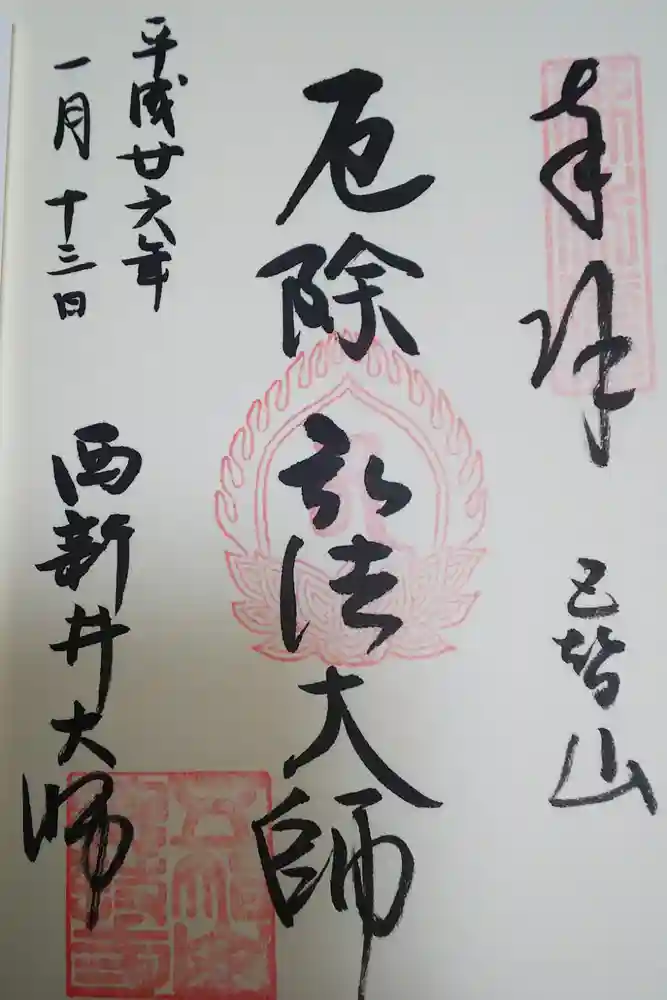 奉拝
五智山
厄除弘法大師
平成廿六年
一月十三日
西新井大師